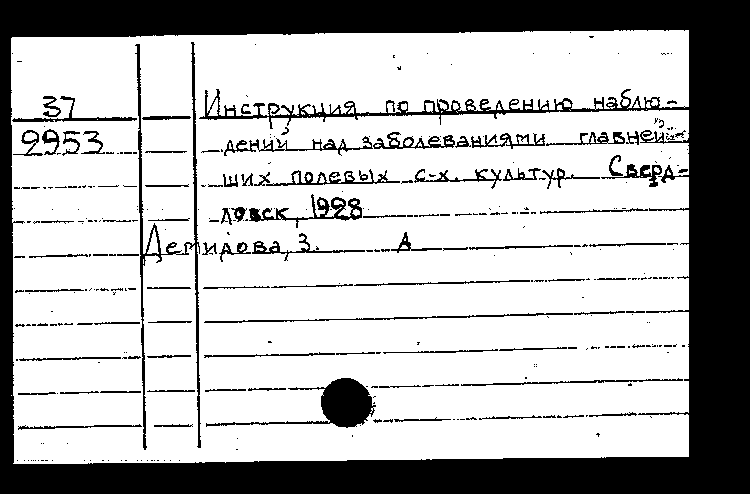 37 Инструкция по проведению наблю-
2953 дений над заболеваниями главней-
ших полевых с-х. культур. Сверд-
ловск, 1928
Демидова, З. А